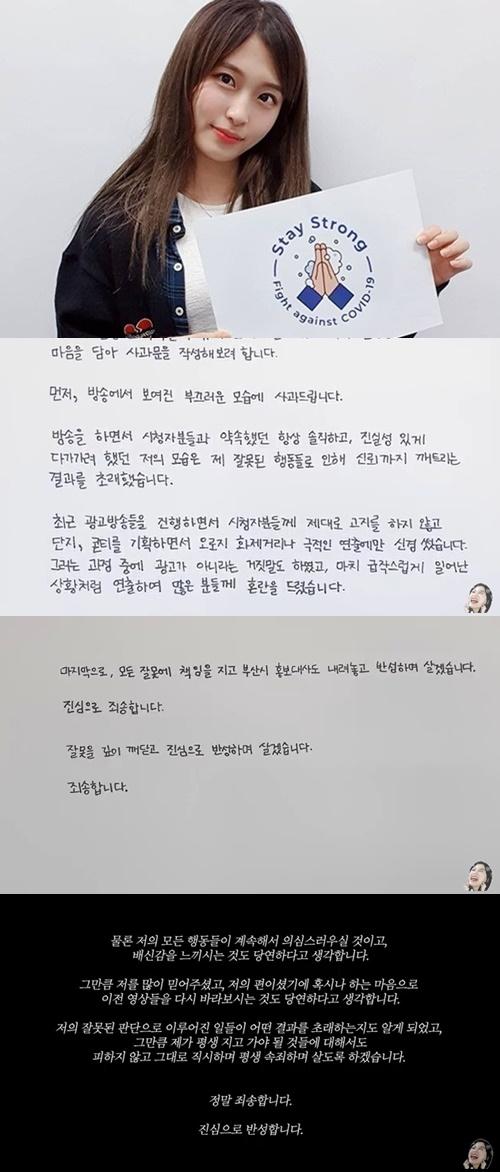 Stay Strong
Fight against COVID-19
마음을 담아 사과문을 작성해보려 합니다.
먼저, 방송에서 보여진 부끄러운 모습에 사과드립니다.
방송을 하면서 시청자분들과 약속했던 항상 솔직하고, 진실성 있게
다가가려 했던 저의 모습은 제 잘못된 행동들로 인해 신뢰까지 깨트리는
결과를 초래했습니다.
최근 광고방송들을 진행하면서 시청자분들께 제대로 고지를 하지 않고
단지, 컨티를 기획하면서 오로지 화제거리나 극적인 연출에만 신경 썼습니다.
그러는 과정 중에 광고가 아니라는 거짓말도 하였고, 마치 급작스럽게 일어난
상황처럼 연출하여 많은 분들께 혼란을 드렸습니다.
마지막으로, 모든 잘못에 책임을 지고 부산시 홍보대사도 내려놓고 반성하며 살겠습니다.
진심으로 죄송합니다.
잘못을 깊이 깨닫고 진심으로 반성하며 살겠습니다.
죄송합니다.
물론 저의 모든 행동들이 계속해서 의심스러우실 것이고,
배신감을 느끼시는 것도 당연하다고 생각합니다.
그만큼 저를 많이 믿어주셨고, 저의 편이셨기에 혹시나 하는 마음으로
이전 영상들을 다시 바라보시는 것도 당연하다고 생각합니다.
저의 잘못된 판단으로 이루어진 일들이 어떤 결과를 초래하는지도 알게 되었고,
그만큼 제가 평생 지고 가야 될 것들에 대해서도
피하지 않고 그대로 직시하며 평생 속죄하며 살도록 하겠습니다.
정말 죄송합니다.
진심으로 반성합니다.